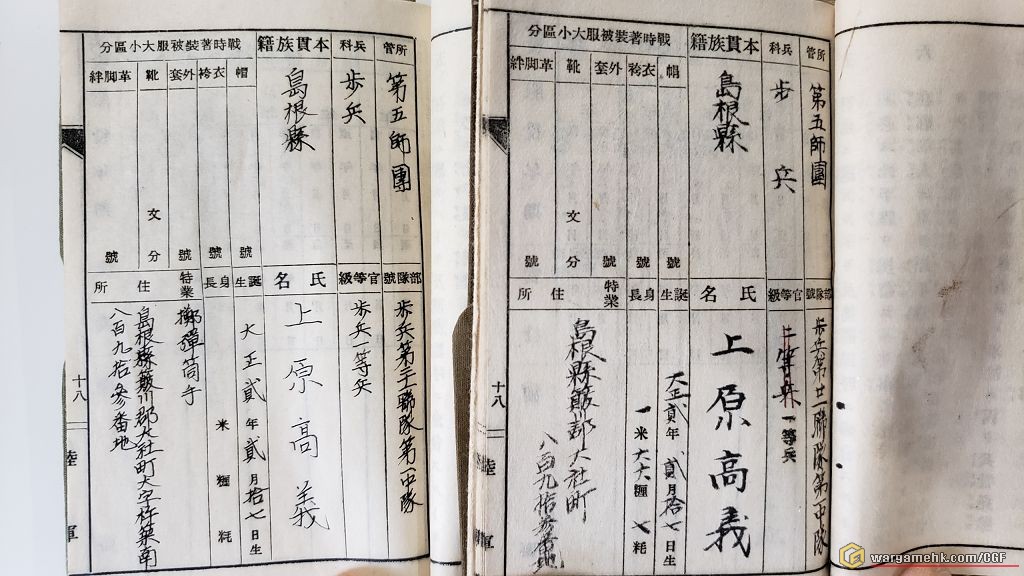 所管
第五師團
兵科
歩兵
本貫族籍
島根縣
戰時著裝被服大小區分
帽
號
衣袴
號
外套
號
靴
文
分
革脚絆
號
部隊號
官等級
歩兵一等兵
氏名
上原高義
誕生
大正貳年貳月拾七日生
身長
米
糎
粍
特業
擲彈筒手
住所
島根縣簸川郡大社町大字杵築南
八百九拾參番地
十八
陸軍
所管
第五師團
兵科
歩兵
本貫族籍
島根縣
戰時著裝被服大小區分
帽
號
衣袴
號
外套
號
靴
文
分
革脚絆
號
部隊號
歩兵第廿一聯隊第一中隊
官等級
二等兵
一等兵
氏名
上原高義
誕生
大正貳年貳月拾七日生
身長
特業
住所
島根縣簸川郡大社町
八百九拾參番地
十八
陸軍
waryamehk.com/CGF